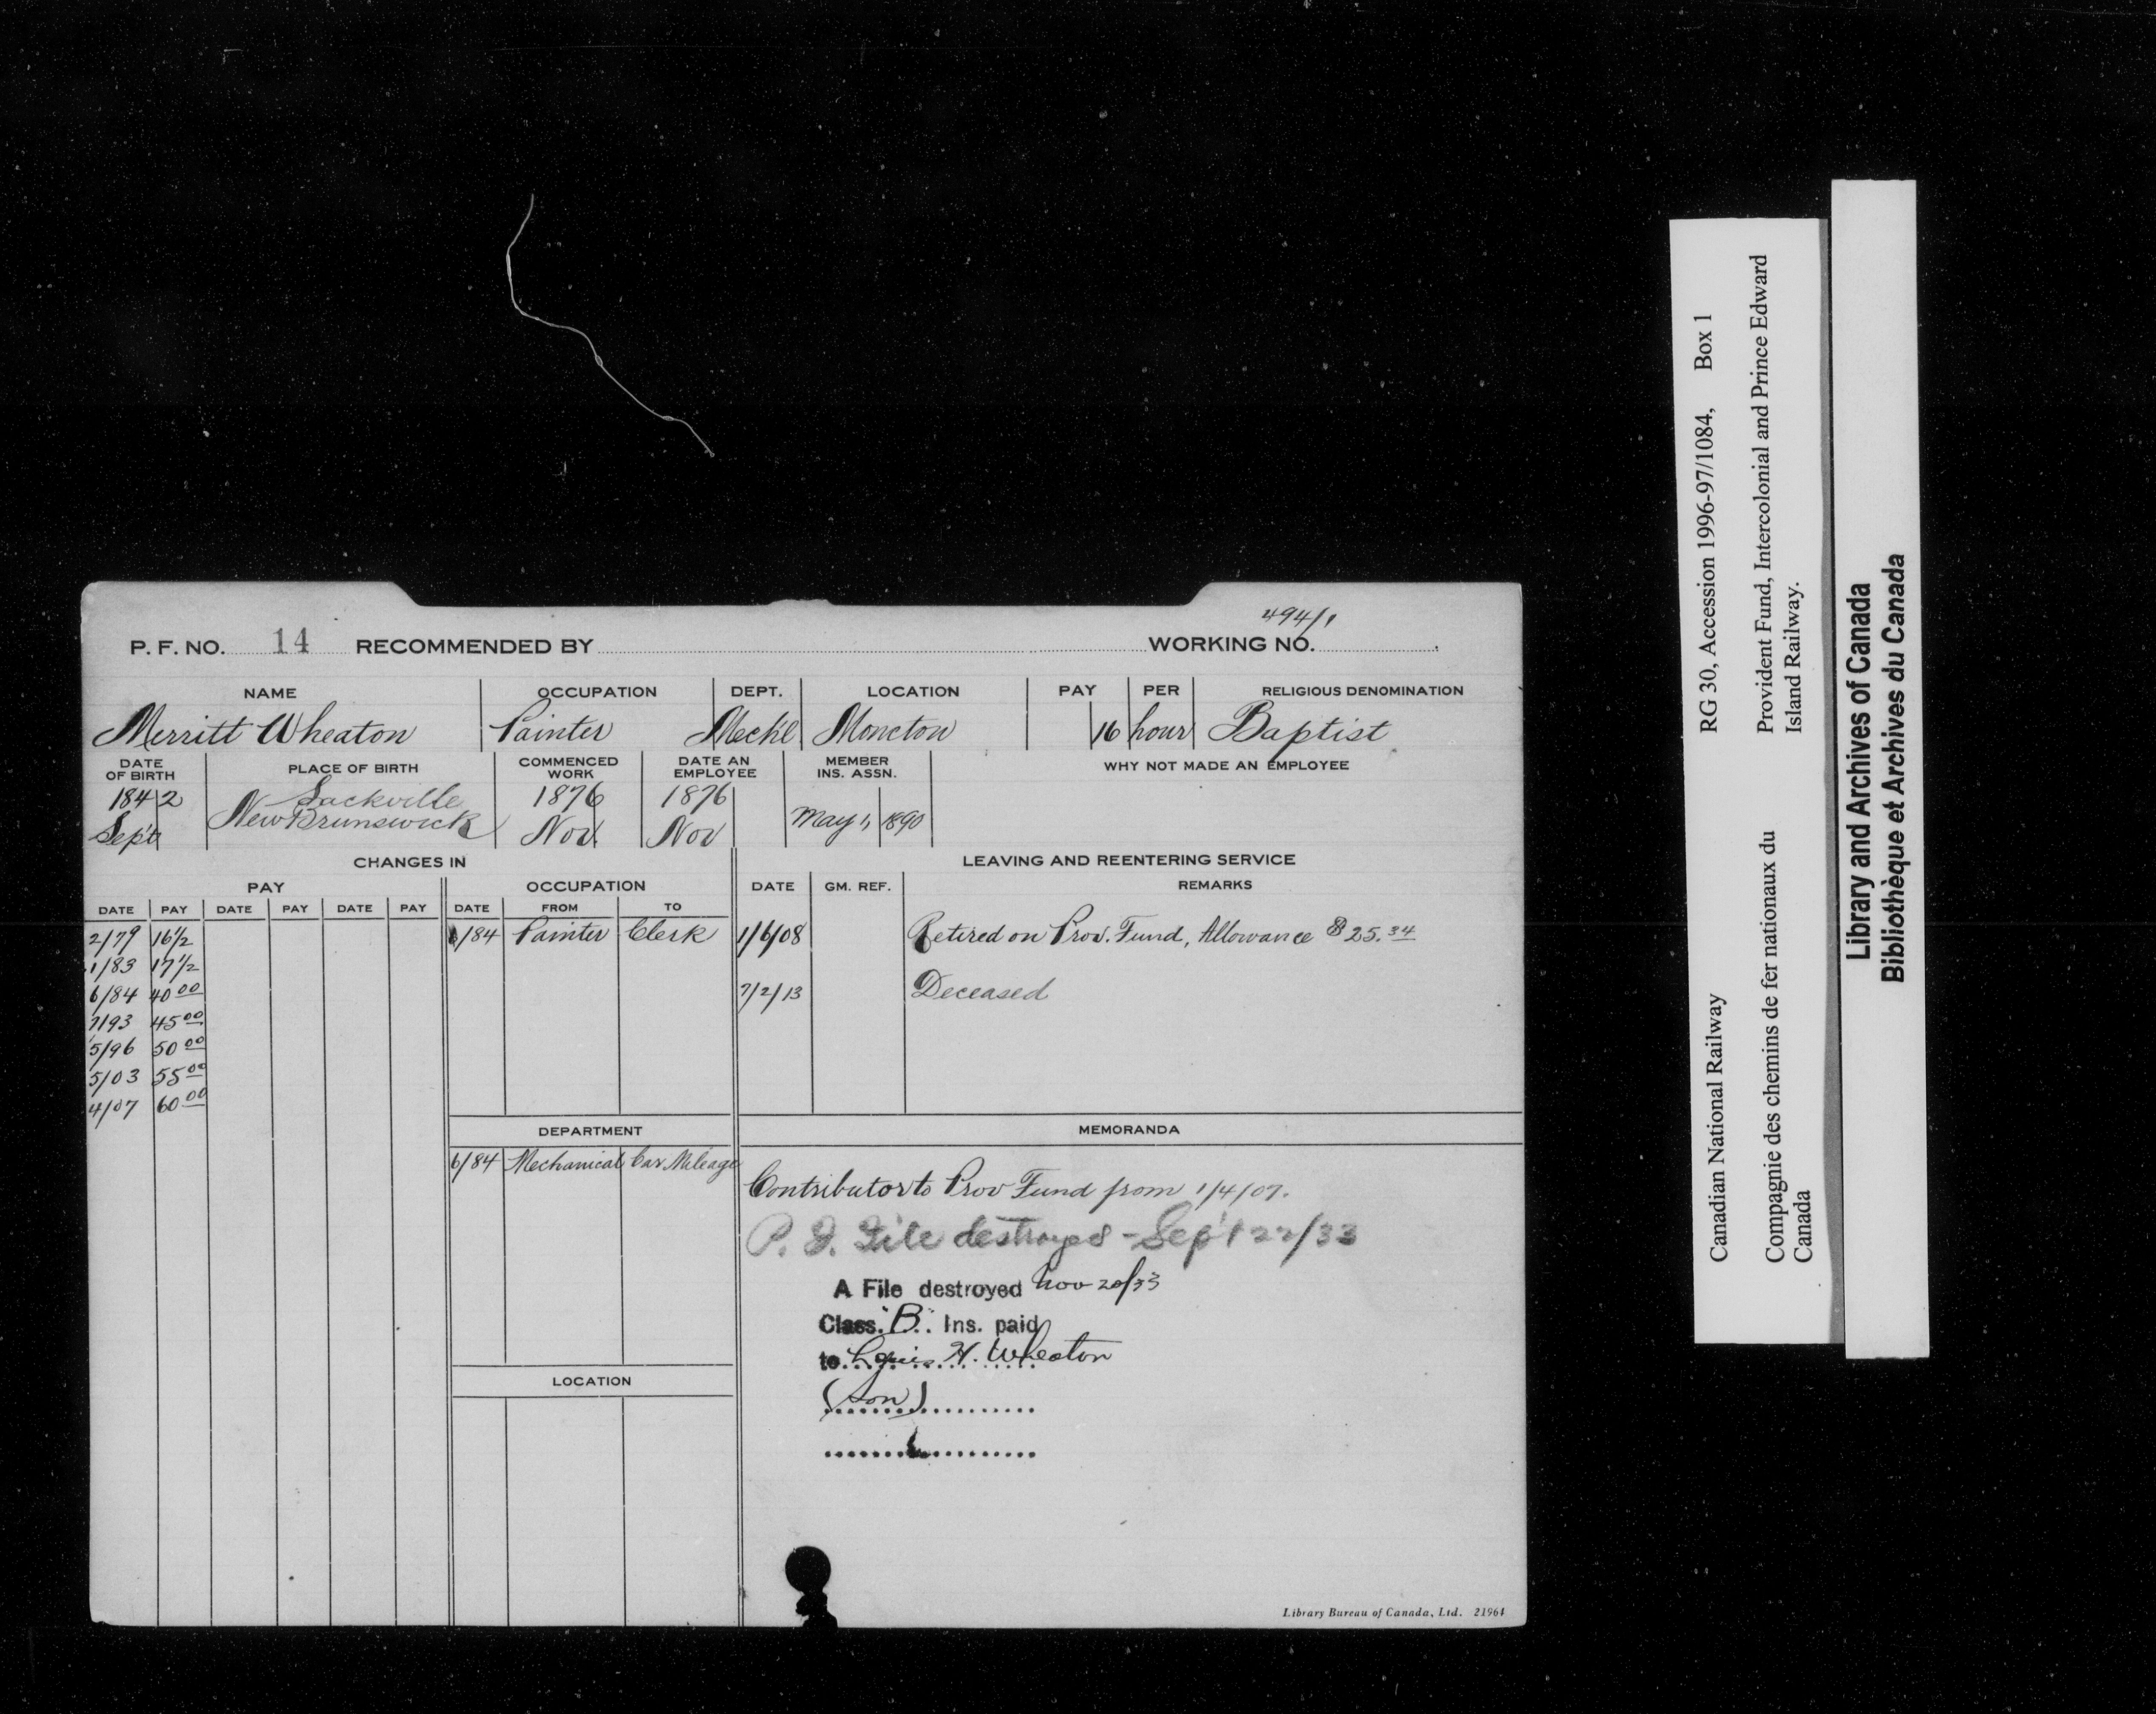 494/1
P. F. NO. 14 RECOMMENDED BY WORKING NO.
NAME OCCUPATION DEPT. LOCATION PAY PER RELIGIOUS DENOMINATION
Merritt Wheaton Painter Mech'l Moncton 16 hour Baptist
DATE OF BIRTH PLACE OF BIRTH COMMENCED WORK DATE AN EMPLOYEE MEMBER INS. ASSN. WHY NOT MADE AN EMPLOYEE
1842 Sackville 1876 1876
Sept New Brunswick Nov. Nov May 1, 1890
CHANGES IN LEAVING AND REENTERING SERVICE
PAY OCCUPATION DATE GM. REF. REMARKS
DATE PAY DATE PAY DATE PAY DATE FROM TO
2/79 16½ 6/84 Painter Clerk 1/6/08 Retired on Prov. Fund, Allowance $25.34
1/83 17½
6/84 40 00 7/2/13 Deceased
7/93 45 00
5/96 50 00
5/03 55 00
4/07 60 00
DEPARTMENT MEMORANDA
6/84 Mechanical Car Mileage
Contributor to Prov Fund from 1/4/07.
P. F. File destroyed - Sep't 22/33
A File destroyed Nov 20/33
Class "B" Ins. paid
to H. Wheaton
(son)
LOCATION
Library Bureau of Canada, Ltd. 21964
Canadian National Railway RG 30, Accession 1996-97/1084, Box 1
Compagnie des chemins de fer nationaux du Provident Fund, Intercolonial and Prince Edward
Canada Island Railway.
Library and Archives of Canada
Bibliothèque et Archives du Canada